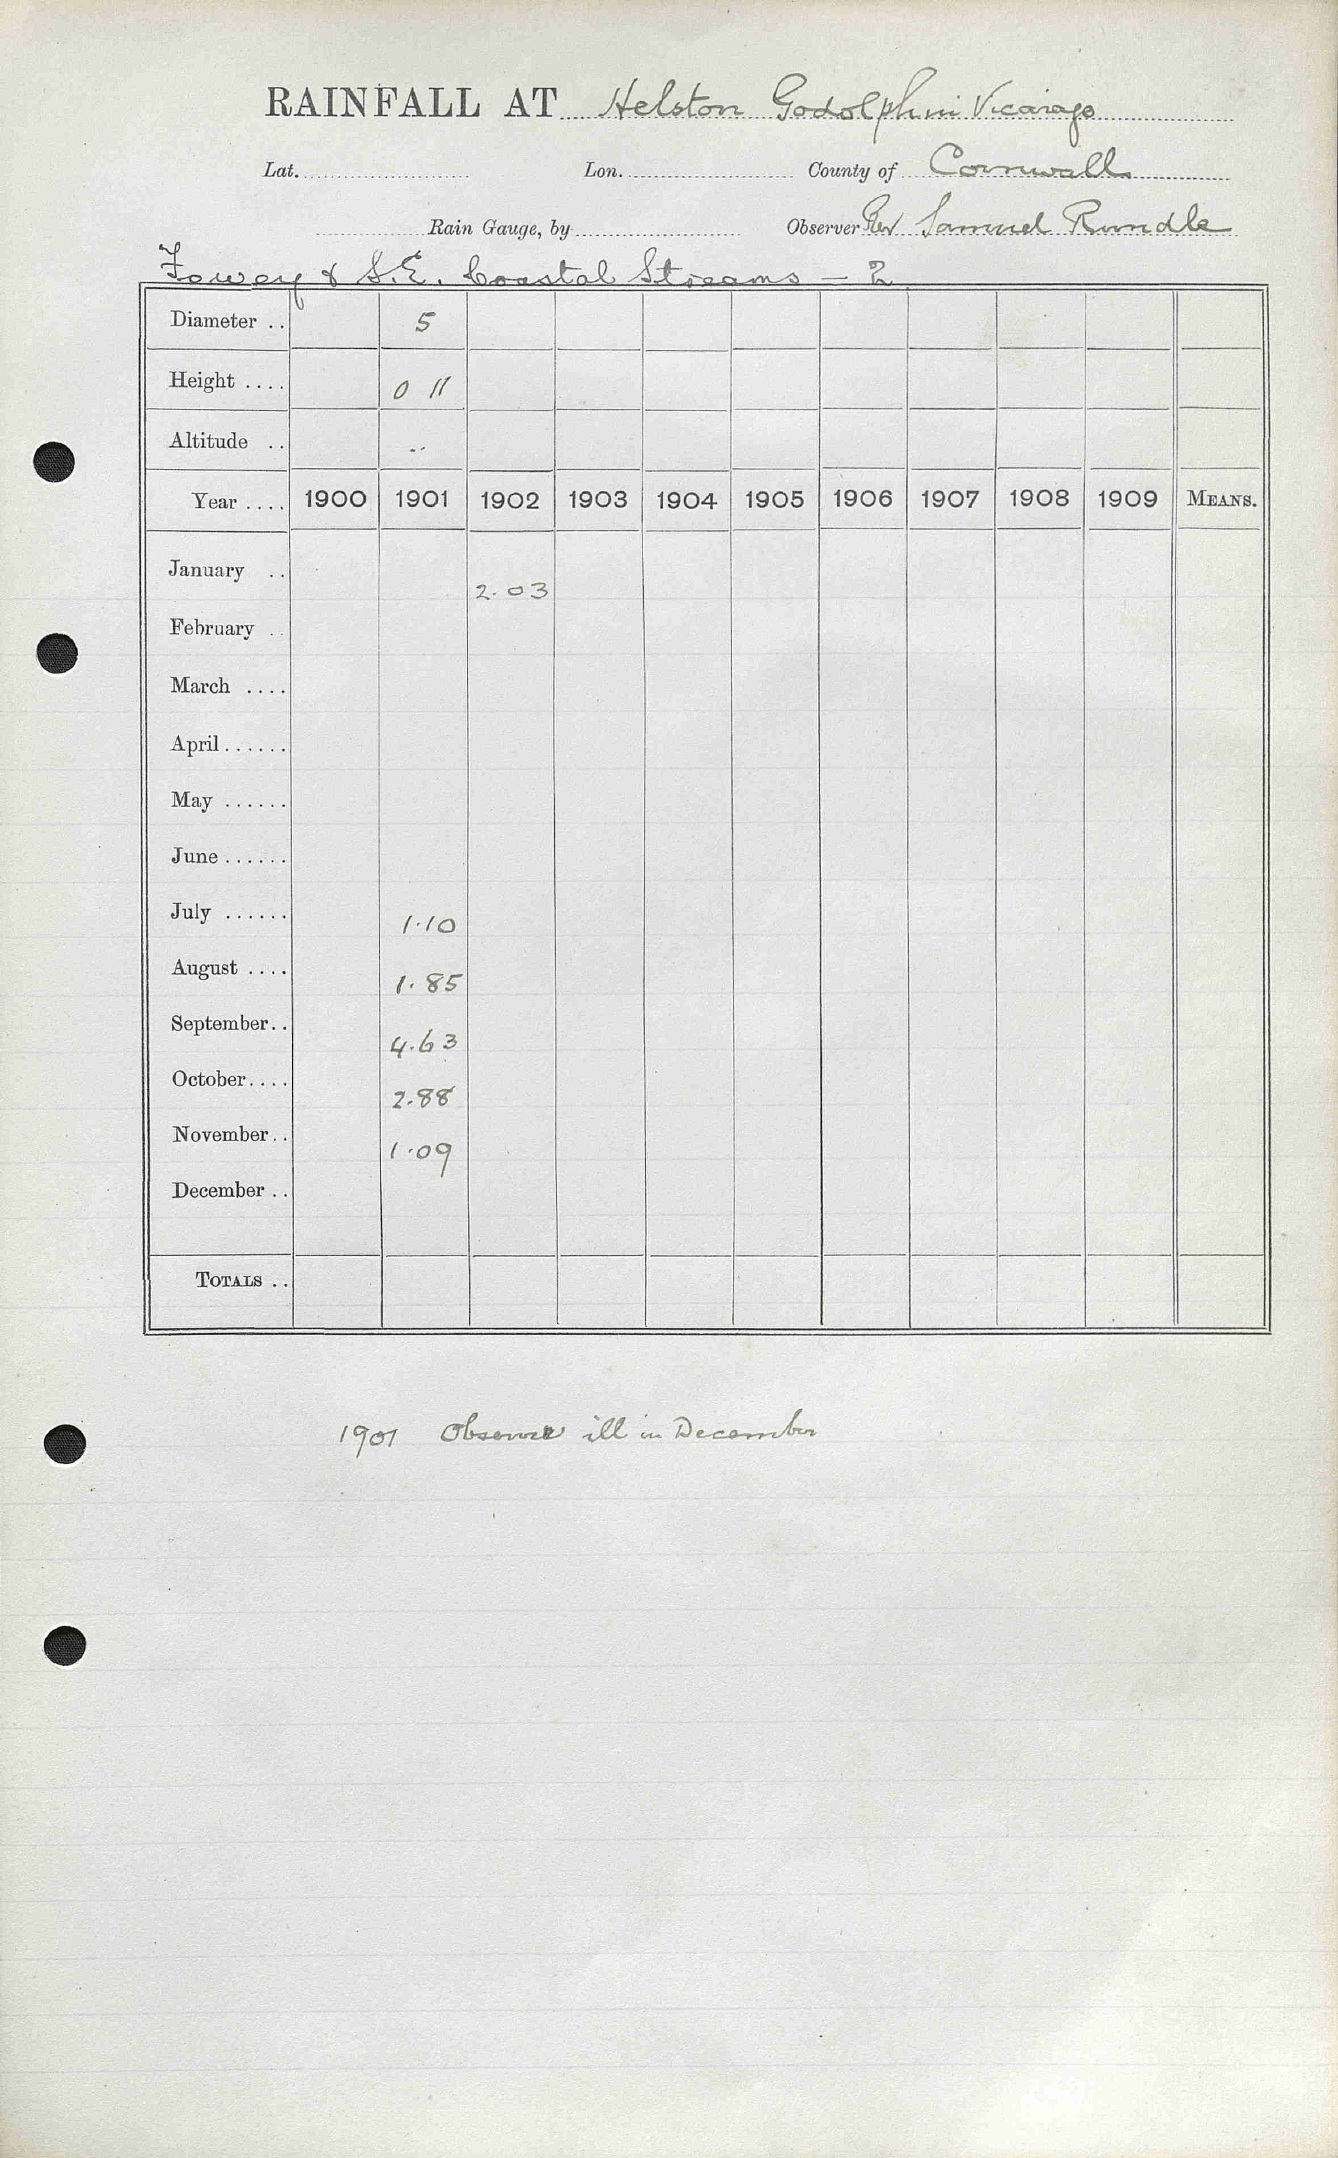 RAINFALL AT Helston Godolphin Vicarage
Lat. Lon. County of Cornwall
Rain Gauge, by Observer Rev Samuel Rundle
Fowey & S.E. Coastal Streams - 2
Diameter .. 5
Height .... 0 11
Altitude .. ..
Year .... 1900 1901 1902 1903 1904 1905 1906 1907 1908 1909 MEANS.
January .. 2.03
February ..
March ....
April ......
May ......
June ......
July ...... 1.10
August .... 1.85
September.. 4.63
October.... 2.88
November.. 1.09
December ..
TOTALS ..
1901 Observer ill in December